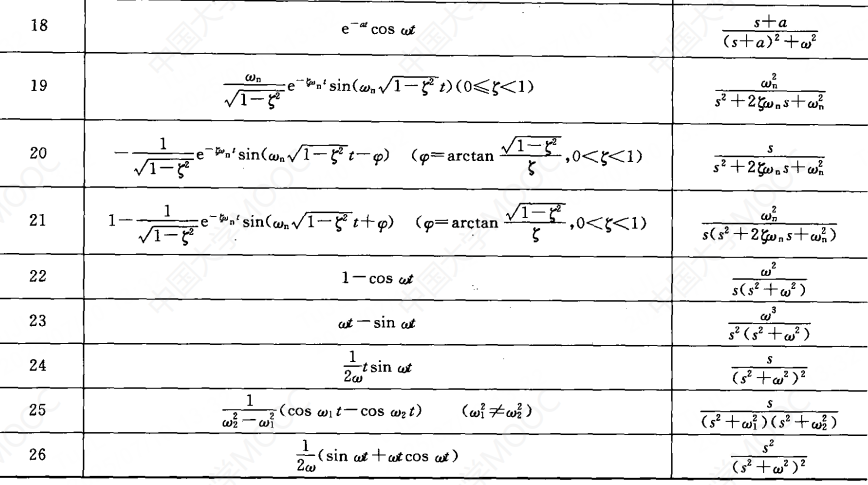 18 e^{-at} cos ωt \frac{s+a}{(s+a)^2+ω^2}
19 \frac{ω_n}{\sqrt{1-ζ^2}}e^{-ζω_n t}sin(ω_n\sqrt{1-ζ^2} t)(0≤ζ<1) \frac{ω_n^2}{s^2+2ζω_n s+ω_n^2}
20 -\frac{1}{\sqrt{1-ζ^2}}e^{-ζω_n t}sin(ω_n\sqrt{1-ζ^2} t-φ) (φ=arctan \frac{\sqrt{1-ζ^2}}{ζ},0<ζ<1) \frac{s}{s^2+2ζω_n s+ω_n^2}
21 1-\frac{1}{\sqrt{1-ζ^2}}e^{-ζω_n t}sin(ω_n\sqrt{1-ζ^2} t+φ) (φ=arctan \frac{\sqrt{1-ζ^2}}{ζ},0<ζ<1) \frac{ω_n^2}{s(s^2+2ζω_n s+ω_n^2)}
22 1-cos ωt \frac{ω^2}{s(s^2+ω^2)}
23 ωt-sin ωt \frac{ω^3}{s^2(s^2+ω^2)}
24 \frac{1}{2ω}t sin ωt \frac{s}{(s^2+ω^2)^2}
25 \frac{1}{ω_2^2-ω_1^2}(cos ω_1 t-cos ω_2 t) (ω_1^2≠ω_2^2) \frac{s}{(s^2+ω_1^2)(s^2+ω_2^2)}
26 \frac{1}{2ω}(sin ωt+ωt cos ωt) \frac{s^2}{(s^2+ω^2)^2}